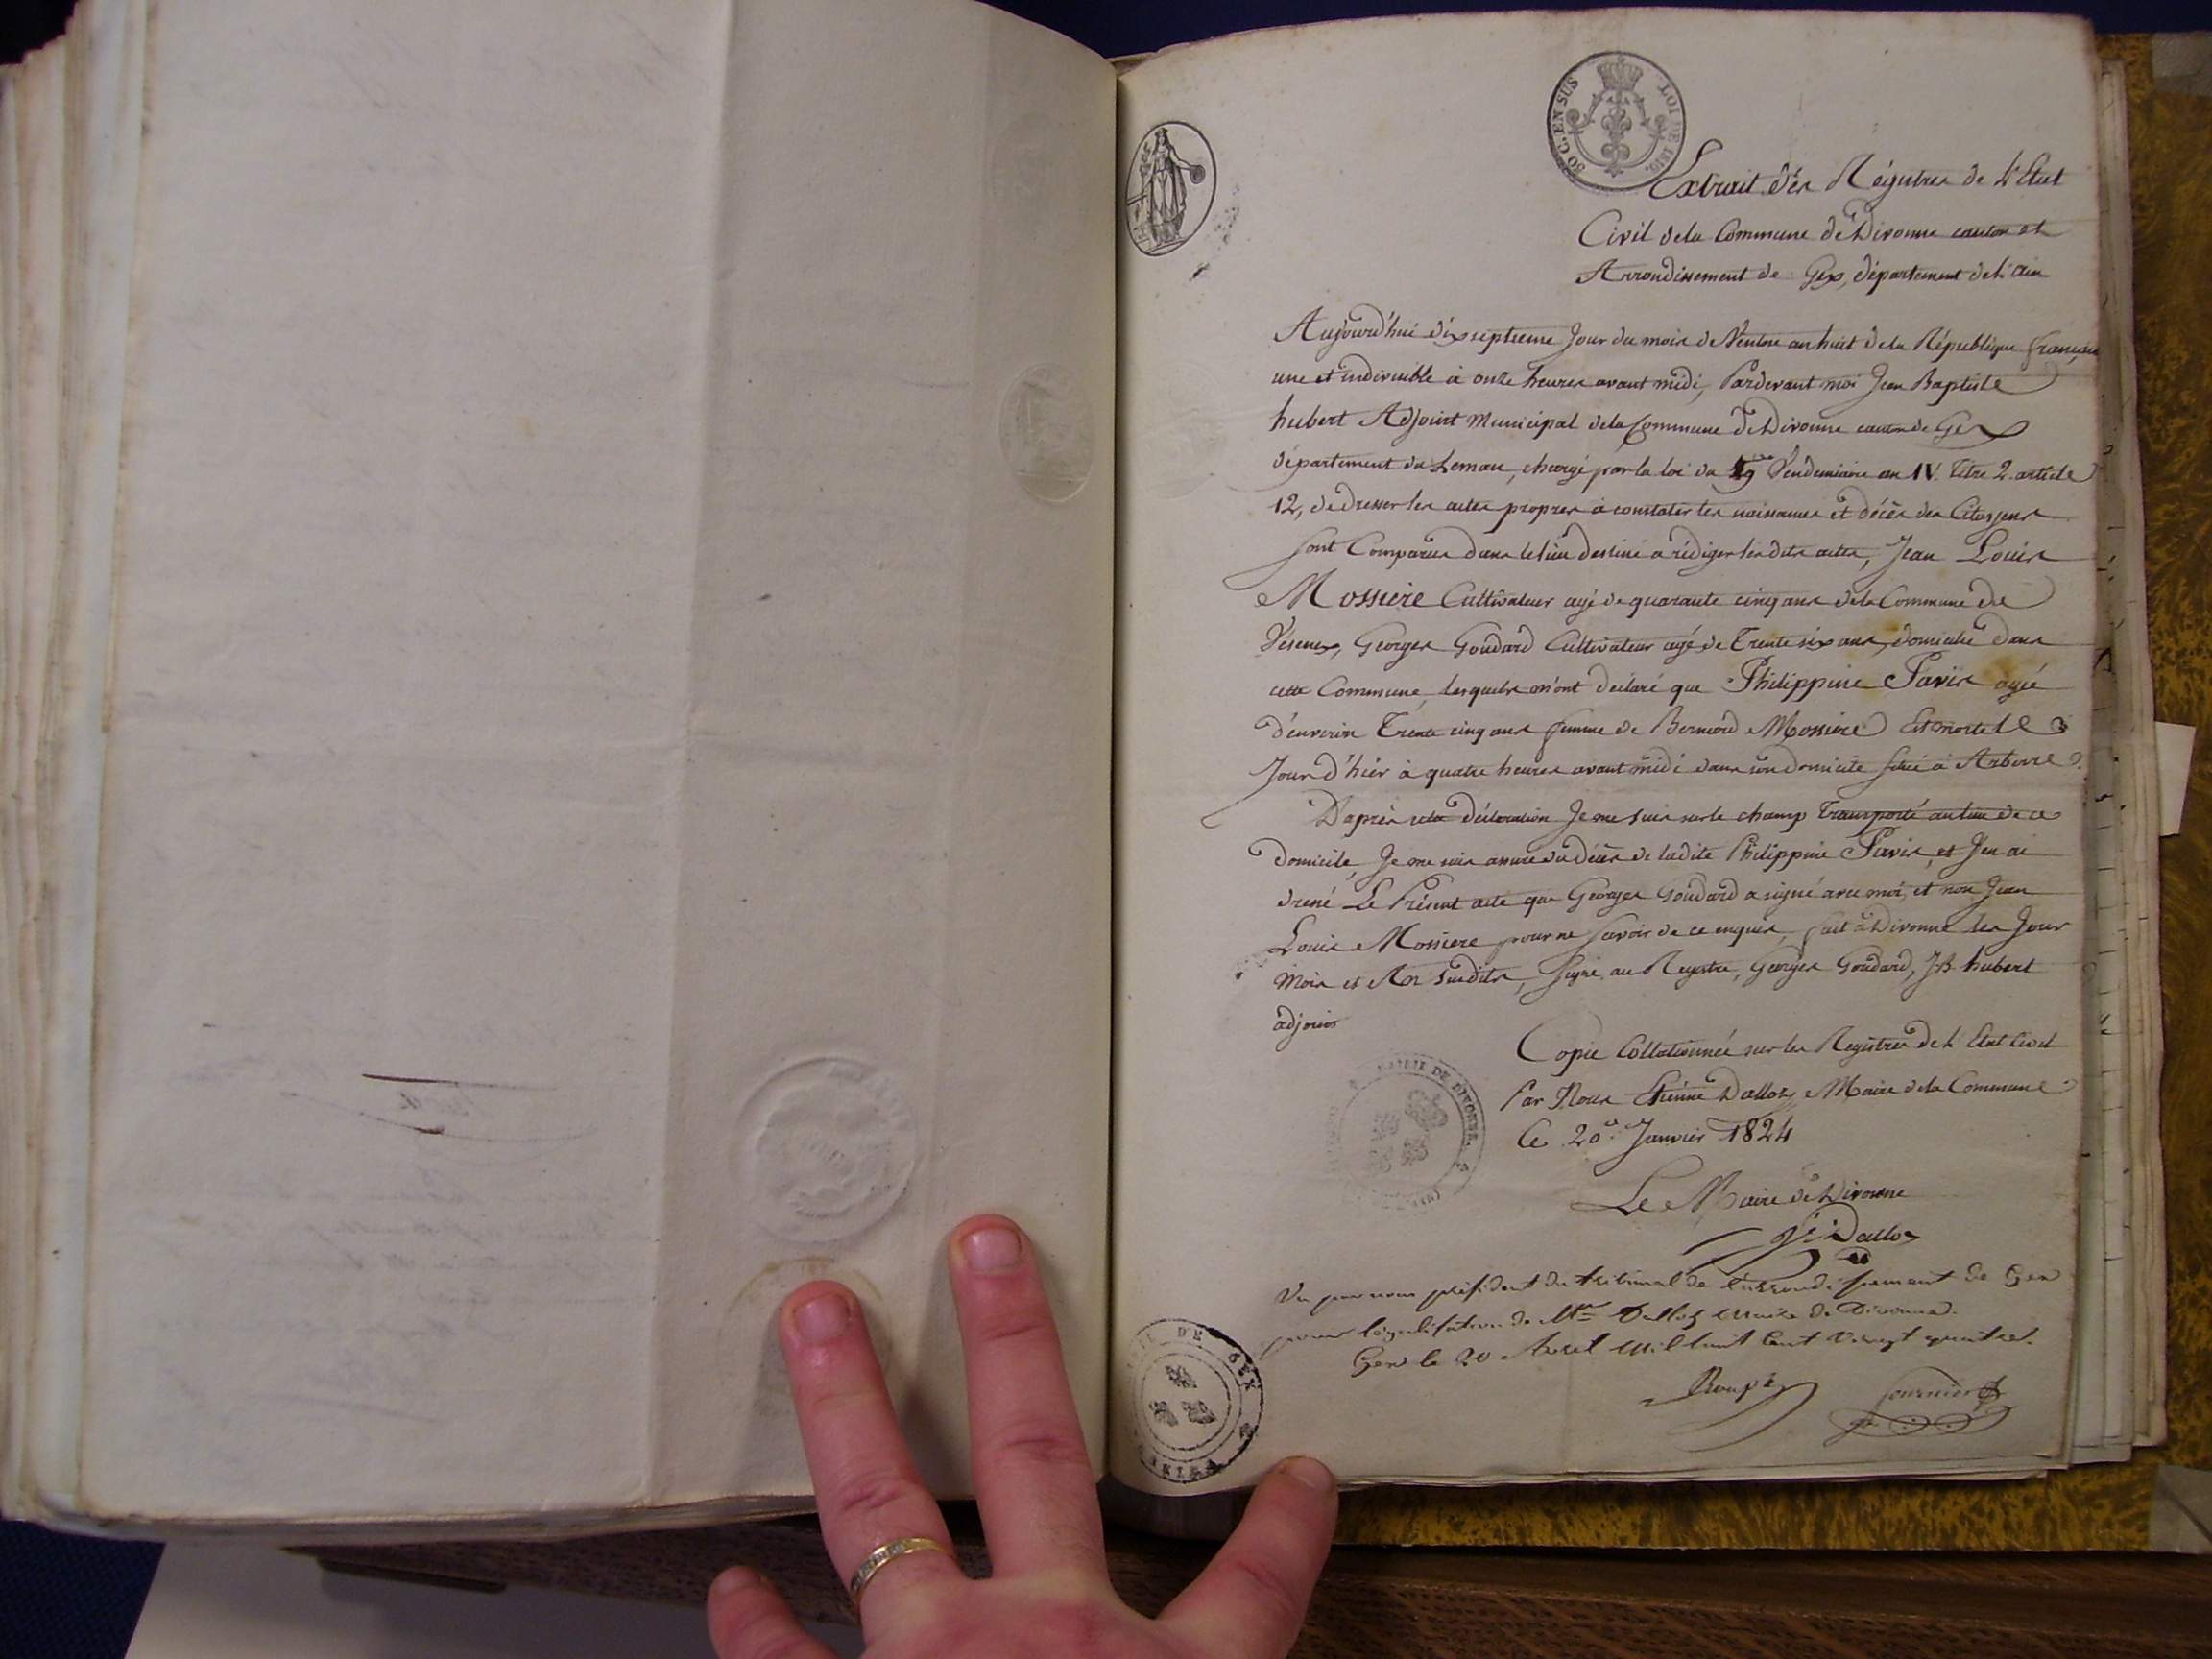 50 C. EN SUS
LOI DE 1816.
Extrait des Régistres de L'Etat
Civil dela Commune de Divonne canton et
Arrondissement de Gex, département del'ain
Aujourd'hui dixseptieme Jour du mois de Ventose an huit dela République française
une et indivisible à onze heures avant midi, Pardevant moi Jean Baptiste
hubert Adjoint Municipal dela Commune de Divonne canton de Gex
département du Leman, chargé par la loi du 19 Vendemiaire an IV. titre 2. article
12, de dresser les actes propres à constater les naissances et décès des Citoyens
sont Comparus dans le lieu destiné a rédiger lesdits actes, Jean Louis
Mossiere Cultivateur agé de quarante cinq ans dela Commune de
Vesenex, Georges Goudard Cultivateur agé de Trente six ans, domicilié dans
cette Commune, lesquels m'ont declaré que Philippine Pavis agée
d'environ Trente cinq ans femme de Bernard Mossiere Est morte le
Jour d'hier à quatre heures avant midi dans son domicile situé à Arbere
D'après cette déclaration Je me suis sur le champ Transporté au lieu de ce
domicile, Je me suis assuré du décès de ladite Philippine Pavis, et J'en ai
dressé Le Présent acte que Georges Goudard a signé avec moi, et non Jean
Louis Mossiere pour ne savoir de ce enquis, fait à Divonne les Jour
Mois et An susdits, signé au Registre, Georges Goudard, J.B. hubert
adjoint
Copie Collationnée sur les Registres de L'Etat Civil
Par Nous Etienne Dalloz Maire dela Commune
Ce 20 Janvier 1824
MAIRIE DE DIVONNE
(AIN)
Le Maire de Divonne
Dalloz
Vu par nous président du tribunal de l'arrondissement de Gex
pour légalisation de Mr Dalloz maire de Divonne.
Gex le 20 Avril mil huit Cent vingt quatre.
DE GEX
Fournier